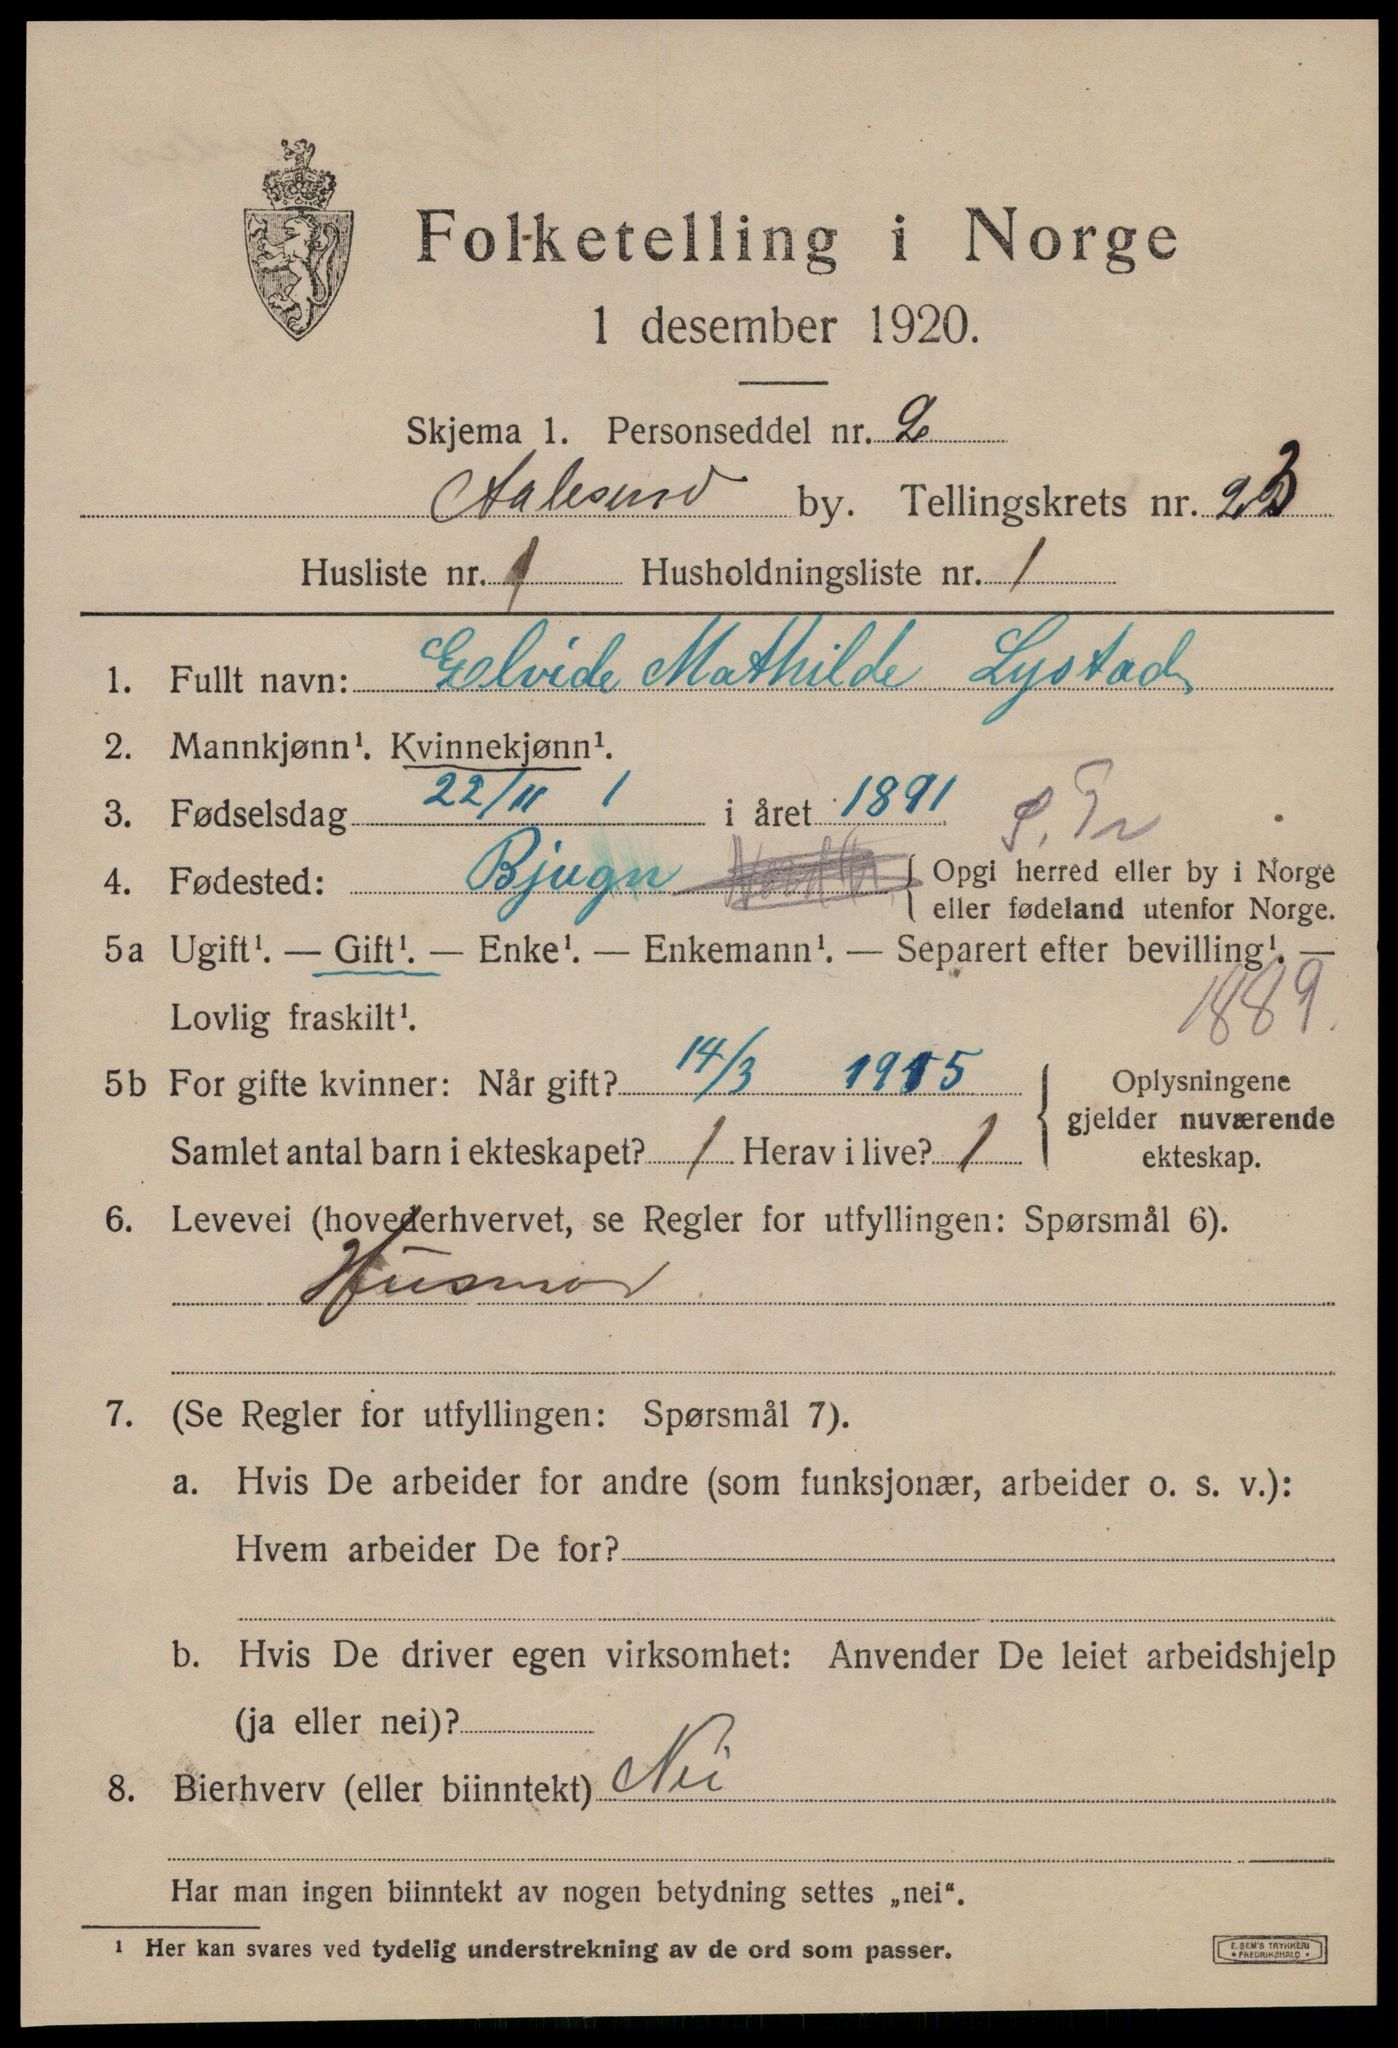 Folketelling i Norge
1 desember 1920.
Skjema 1. Personseddel nr. 2
Aalesund by. Tellingskrets nr. 23
Husliste nr. 1 Husholdningsliste nr. 1
1. Fullt navn: Elvide Mathilde Lystad
2. Mannkjønn¹. Kvinnekjønn¹.
3. Fødselsdag 22/11 1 i året 1891
S. Tr
4. Fødested: Bjugn { Opgi herred eller by i Norge
eller fødeland utenfor Norge.
5a Ugift¹. — Gift¹. — Enke¹. — Enkemann¹. — Separert efter bevilling¹. —
Lovlig fraskilt¹. 1889.
5b For gifte kvinner: Når gift? 14/3 1915 { Oplysningene
gjelder nuværende
Samlet antal barn i ekteskapet? 1 Herav i live? 1 ekteskap.
6. Levevei (hovederhvervet, se Regler for utfyllingen: Spørsmål 6).
Husmor
7. (Se Regler for utfyllingen: Spørsmål 7).
a. Hvis De arbeider for andre (som funksjonær, arbeider o. s. v.):
Hvem arbeider De for?
b. Hvis De driver egen virksomhet: Anvender De leiet arbeidshjelp
(ja eller nei)?
8. Bierhverv (eller biinntekt) Nei
Har man ingen biinntekt av nogen betydning settes „nei“.
¹ Her kan svares ved tydelig understrekning av de ord som passer.
E. SEM'S TRYKKERI
• FREDRIKSHALD •